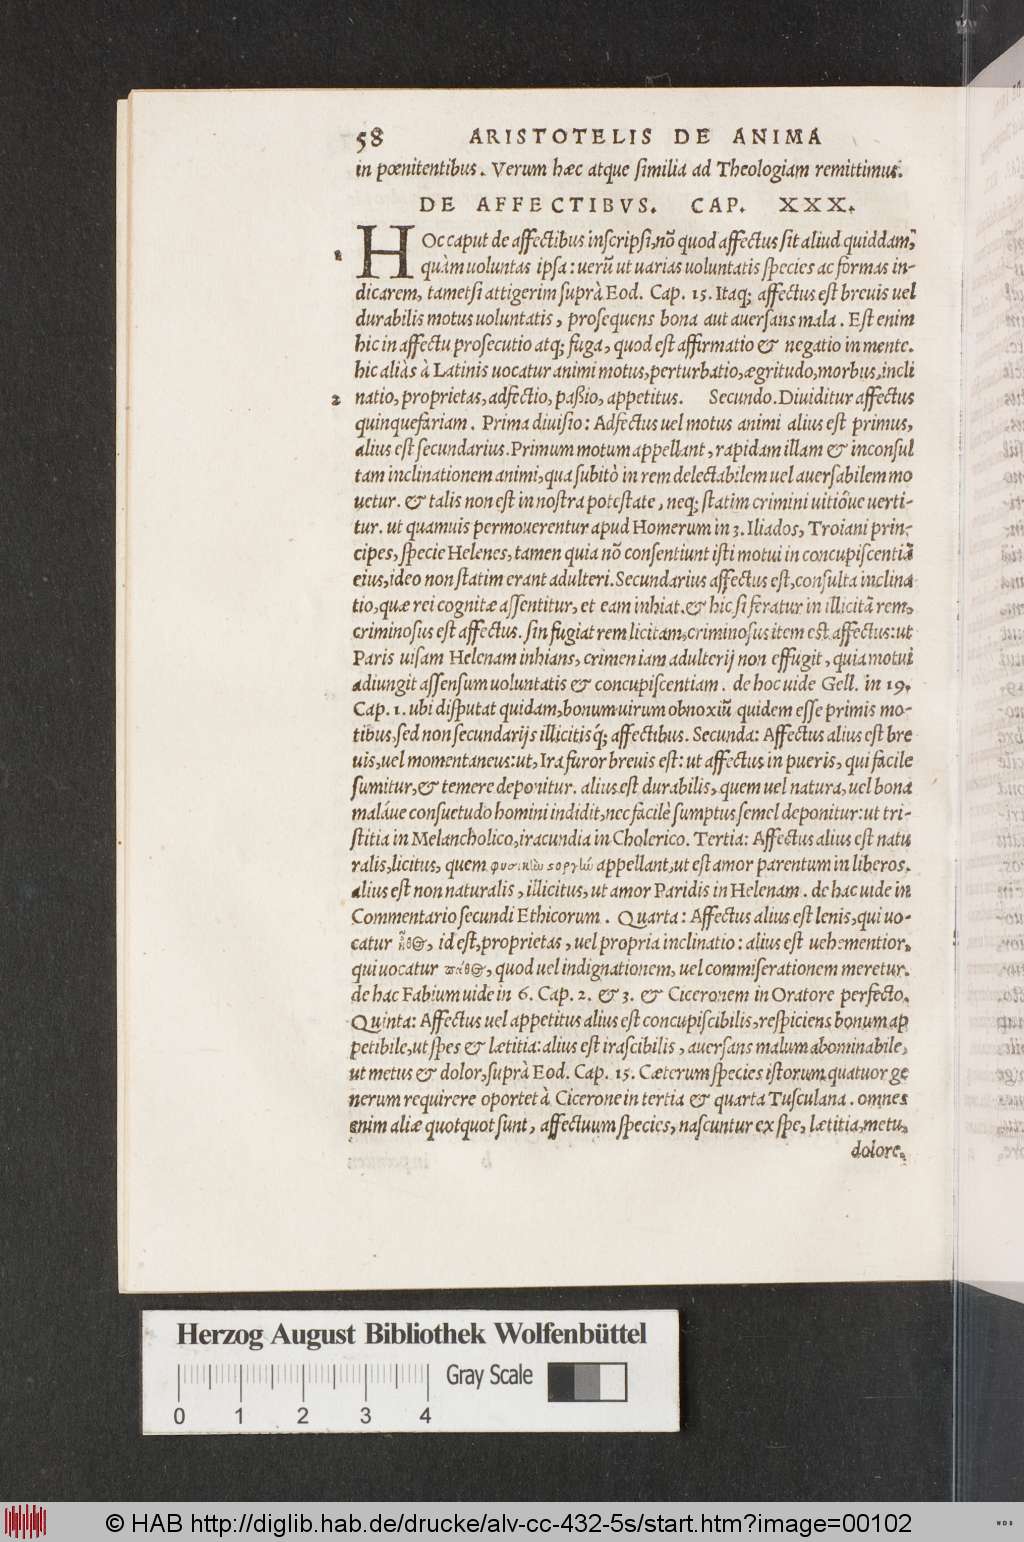 58 ARISTOTELIS DE ANIMA
in pœnitentibus. Verum hæc atque similia ad Theologiam remittimus.
DE AFFECTIBVS. CAP. XXX.
1 HOc caput de affectibus inscripsi, nõ quod affectus sit aliud quiddam,
quàm uoluntas ipsa: uerũ ut uarias uoluntatis species ac formas in-
dicarem, tametsi attigerim suprà Eod. Cap. 15. Itaq; affectus est breuis uel
durabilis motus uoluntatis, prosequens bona aut auersans mala. Est enim
hic in affectu prosecutio atq; fuga, quod est affirmatio & negatio in mente.
hic aliàs à Latinis uocatur animi motus, perturbatio, ægritudo, morbus, incli
2 natio, proprietas, adfectio, paßio, appetitus. Secundo. Diuiditur affectus
quinquefariam. Prima diuisio: Adfectus uel motus animi alius est primus,
alius est secundarius. Primum motum appellant, rapidam illam & inconsul
tam inclinationem animi, qua subitò in rem delectabilem uel auersabilem mo
uetur. & talis non est in nostra potestate, neq; statim crimini uitióue uerti-
tur. ut quamuis permouerentur apud Homerum in 3. Iliados, Troiani prin-
cipes, specie Helenes, tamen quia nõ consentiunt isti motui in concupiscentiã
eius, ideo non statim erant adulteri. Secundarius affectus est, consulta inclina
tio, quæ rei cognitæ assentitur, et eam inhiat. & hic si feratur in illicitã rem,
criminosus est affectus. sin fugiat rem licitam, criminosus item est affectus: ut
Paris uisam Helenam inhians, crimen iam adulterij non effugit, quia motui
adiungit assensum uoluntatis & concupiscentiam. de hoc uide Gell. in 19.
Cap. 1. ubi disputat quidam, bonum uirum obnoxiũ quidem esse primis mo-
tibus, sed non secundarijs illicitisq́; affectibus. Secunda: Affectus alius est bre
uis, uel momentaneus: ut, Ira furor breuis est: ut affectus in pueris, qui facile
sumitur, & temere deponitur. alius est durabilis, quem uel natura, uel bona
maláue consuetudo homini indidit, nec facilè sumptus semel deponitur: ut tri-
stitia in Melancholico, iracundia in Cholerico. Tertia: Affectus alius est natu
ralis, licitus, quem φυσικὴν στοργὴν appellant, ut est amor parentum in liberos.
alius est non naturalis, illicitus, ut amor Paridis in Helenam. de hac uide in
Commentario secundi Ethicorum. Quarta: Affectus alius est lenis, qui uo-
catur ἦθος, id est, proprietas, uel propria inclinatio: alius est uehementior,
qui uocatur πάθος, quod uel indignationem, uel commiserationem meretur.
de hac Fabium uide in 6. Cap. 2. & 3. & Ciceronem in Oratore perfecto.
Quinta: Affectus uel appetitus alius est concupiscibilis, respiciens bonum ap
petibile, ut spes & lætitia: alius est irascibilis, auersans malum abominabile,
ut metus & dolor, suprà Eod. Cap. 15. Cæterum species istorum quatuor ge
nerum requirere oportet à Cicerone in tertia & quarta Tusculana. omnes
enim aliæ quotquot sunt, affectuum species, nascuntur ex spe, lætitia, metu,
dolore.
Herzog August Bibliothek Wolfenbüttel
Gray Scale
0 1 2 3 4
© HAB http://diglib.hab.de/drucke/alv-cc-432-5s/start.htm?image=00102